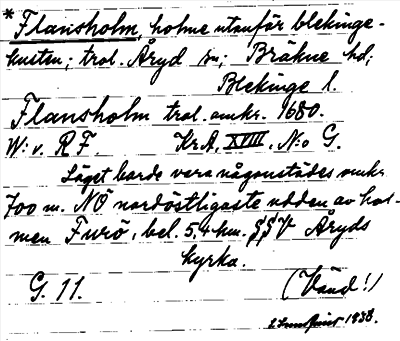 * Flansholm, holme utanför blekinge-
kusten; trol. Åryd sn; Bräkne hd;
Blekinge l.
Flansholm trol. omkr. 1680.
W: v. R F. Kr.A, XVIII, N:o G.
Läget borde vara någonstädes omkr.
700 m. NÖ nordöstligaste udden av hol-
men Furö, bel. 5,4 km. SSV Åryds
kyrka.
G. 11. (Vänd!)
1938.